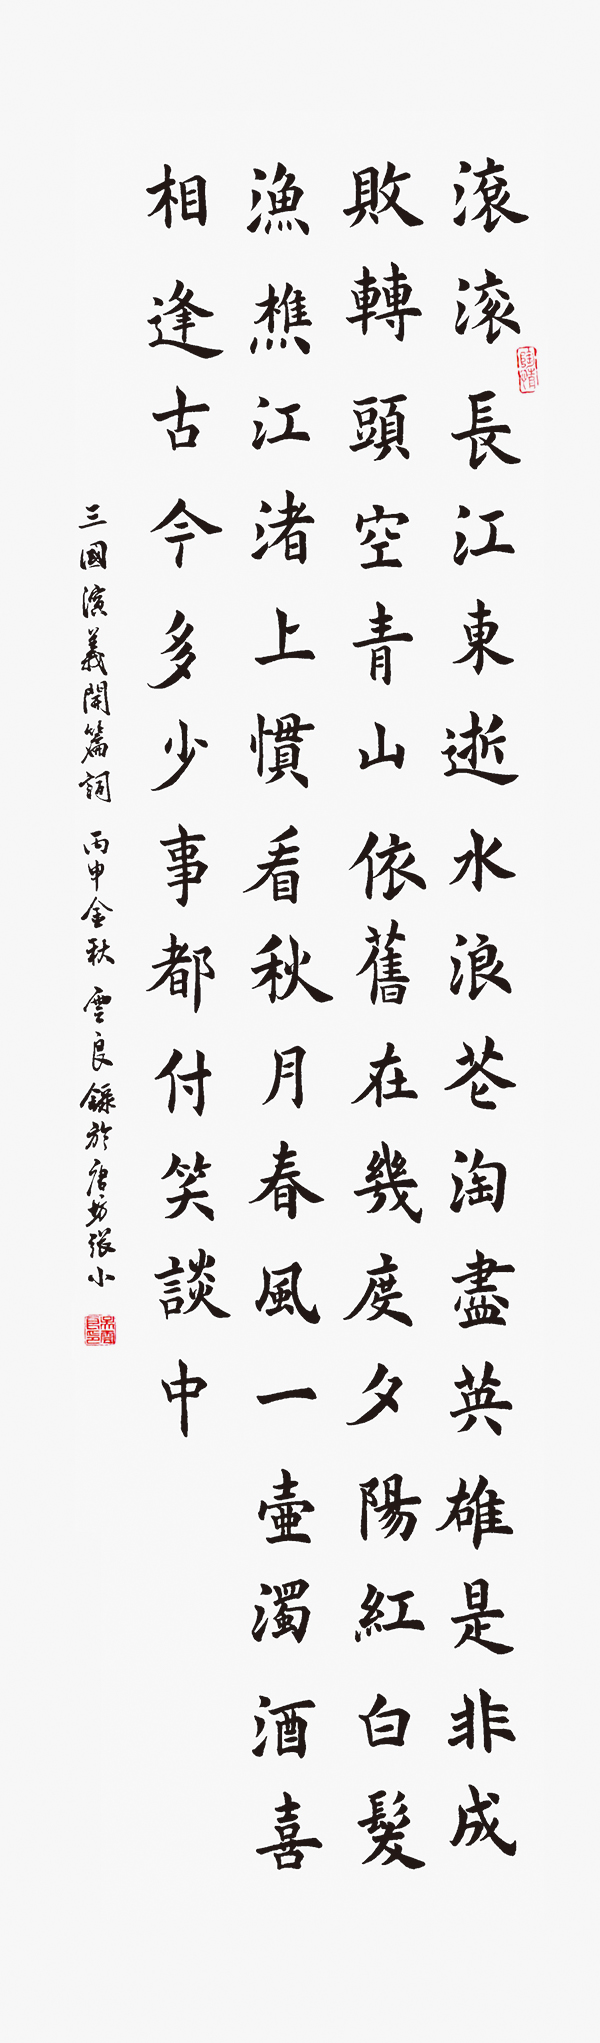 滾滚長江東逝水浪花淘盡英雄是非成
敗轉頭空青山依舊在幾度夕陽紅白髮
漁樵江渚上慣看秋月春風一壺濁酒喜
相逢古今多少事都付笑談中
三國演義開篇詞 丙申金秋 雲良錄於唐坊張小